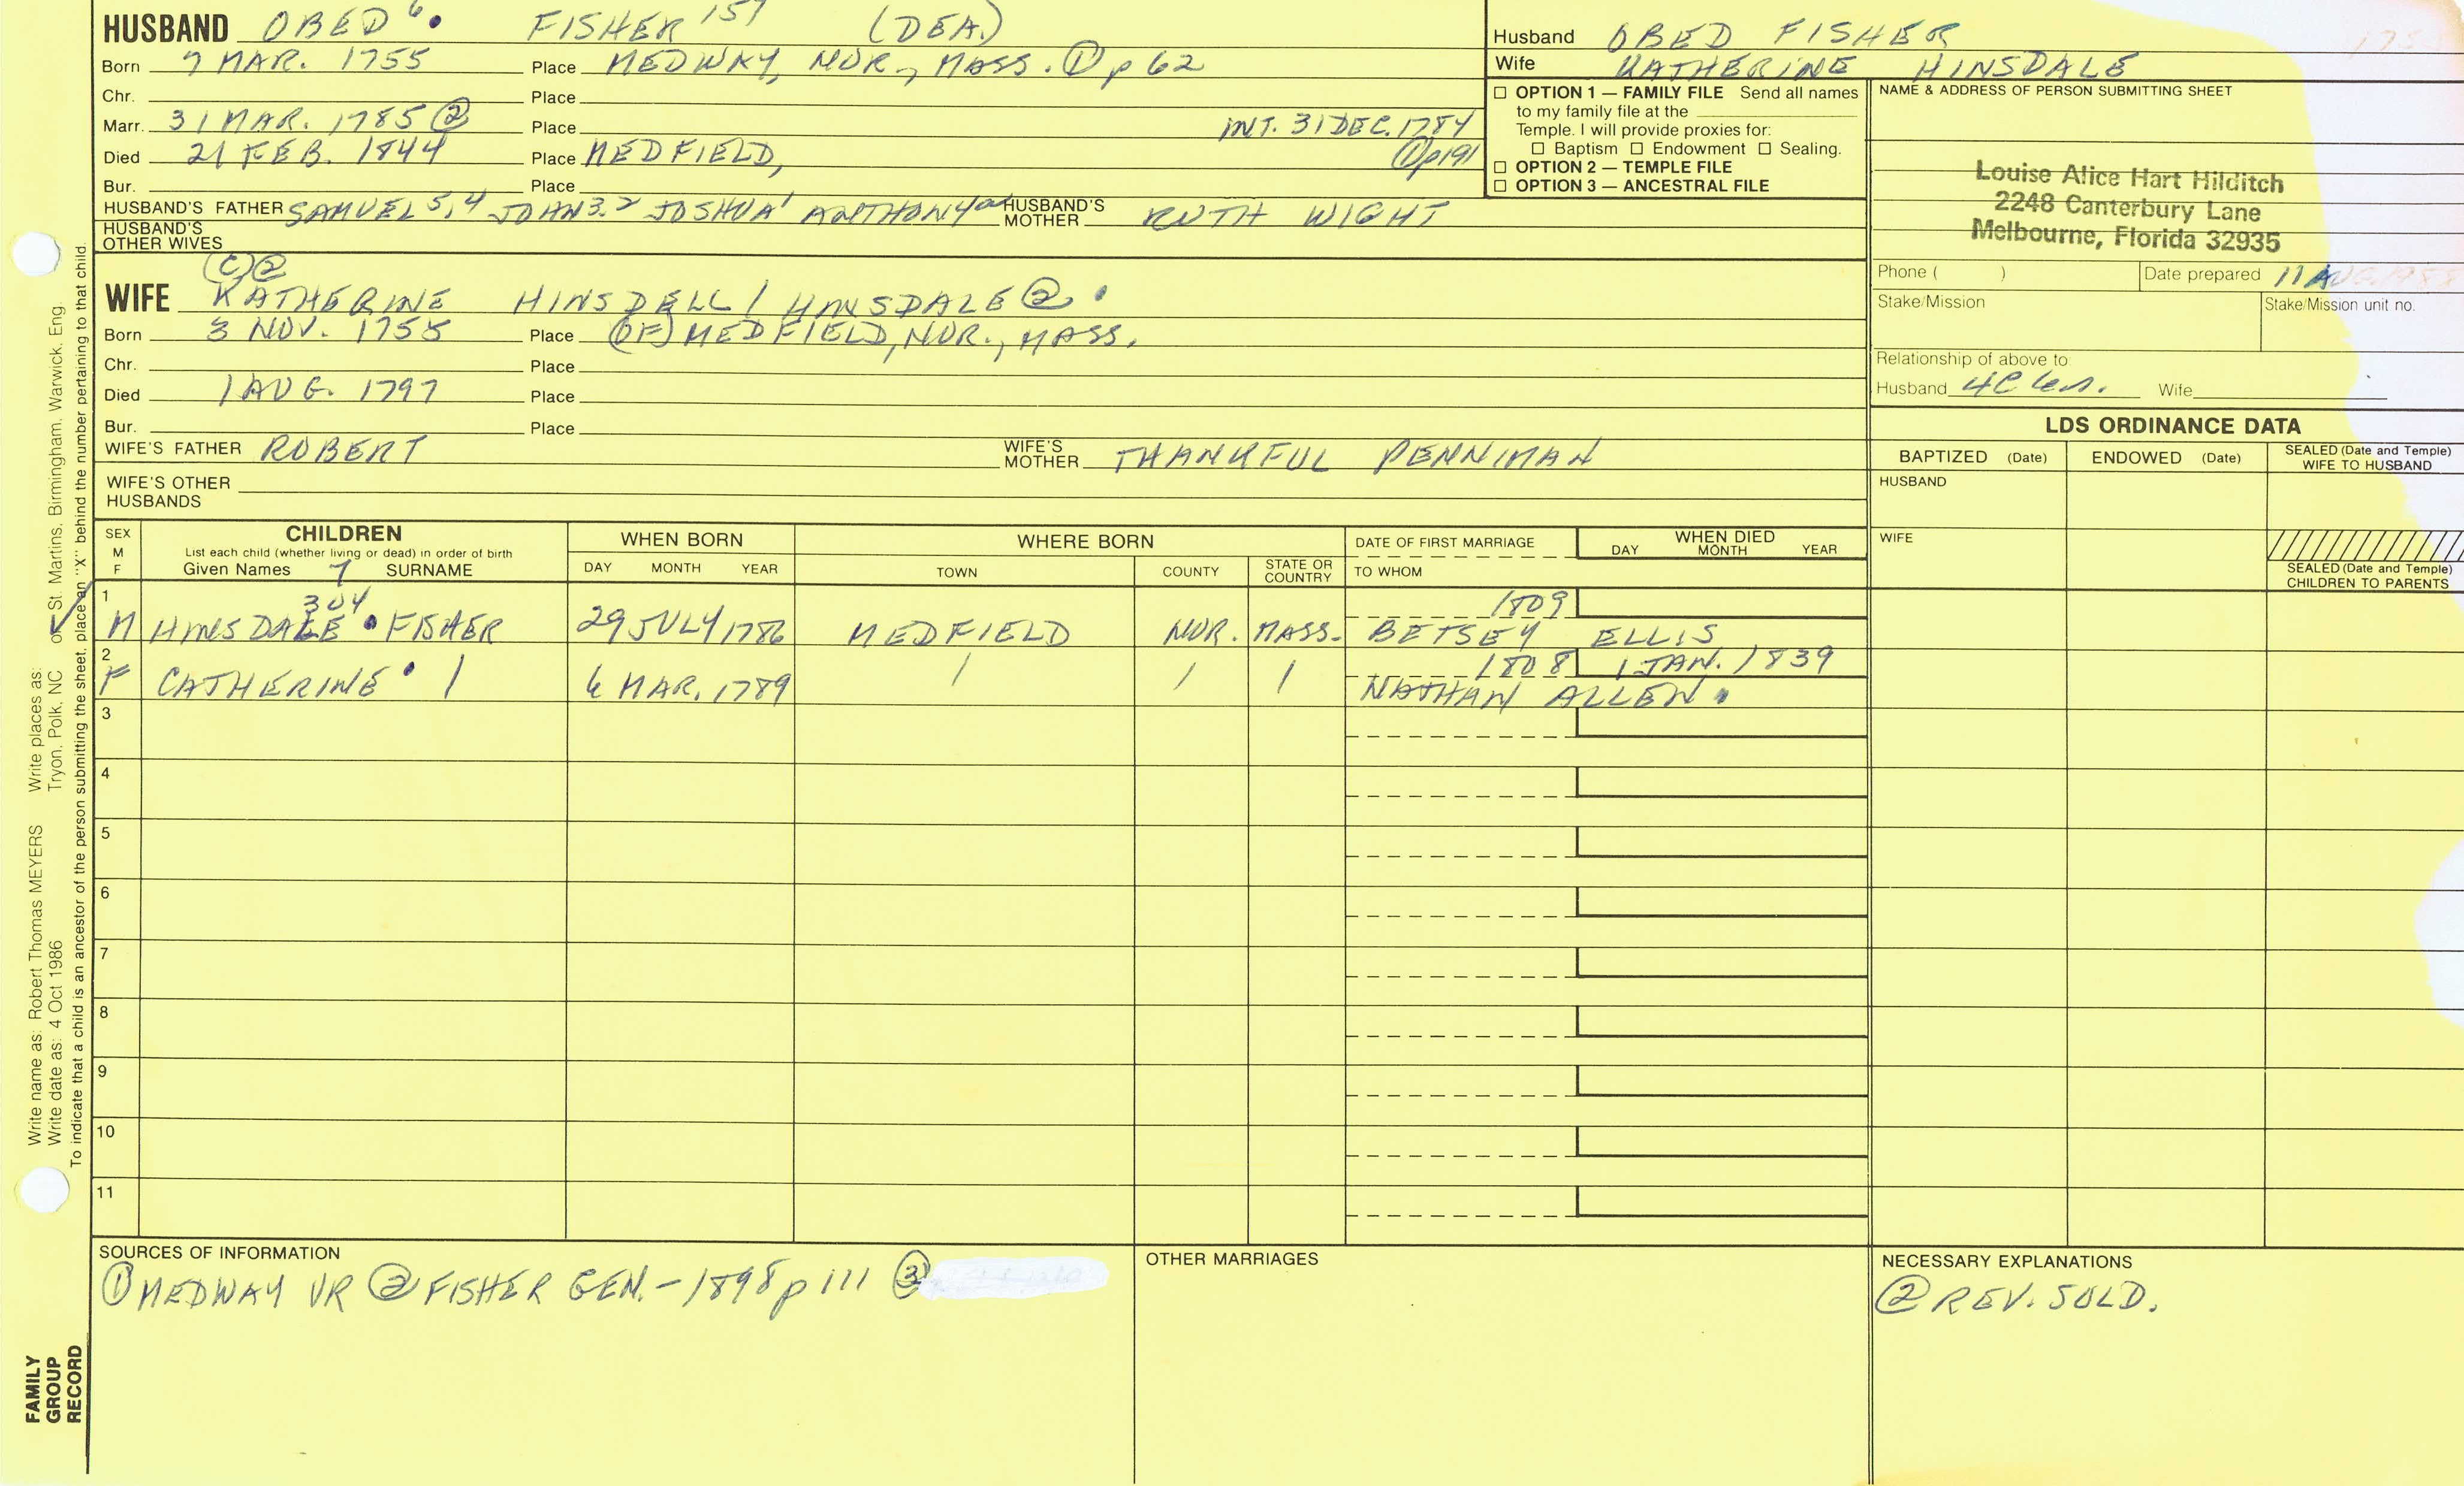 HUSBAND OBED 6. FISHER 157 (DEA.)
Born 7 MAR. 1755 Place MEDWAY, NOR., MASS. ① p 62
Chr. Place
Marr. 31 MAR. 1785 ② Place INT. 31 DEC. 1784
Died 21 FEB. 1844 Place MEDFIELD, ① p191
Bur. Place
HUSBAND'S FATHER SAMUEL 5,4 JOHN 3,2 JOSHUA 1 ANTHONY HUSBAND'S MOTHER RUTH WIGHT
HUSBAND'S OTHER WIVES
(C) ②
WIFE KATHERINE HINSDELL / HINSDALE ② .
Born 3 NOV. 1755 Place (OF) MEDFIELD, NOR., MASS.
Chr. Place
Died 1 AUG. 1797 Place
Bur. Place
WIFE'S FATHER ROBERT WIFE'S MOTHER THANKFUL PENNIMAN
WIFE'S OTHER HUSBANDS
Husband OBED FISHER
Wife KATHERINE HINSDALE
☐ OPTION 1 — FAMILY FILE Send all names
to my family file at the
Temple. I will provide proxies for:
☐ Baptism ☐ Endowment ☐ Sealing.
☐ OPTION 2 — TEMPLE FILE
☐ OPTION 3 — ANCESTRAL FILE
NAME & ADDRESS OF PERSON SUBMITTING SHEET
Louise Alice Hart Hilditch
2248 Canterbury Lane
Melbourne, Florida 32935
Phone ( ) Date prepared 11 AUG. 1988
Stake/Mission Stake/Mission unit no.
Relationship of above to:
Husband Wife
LDS ORDINANCE DATA
BAPTIZED (Date) ENDOWED (Date) SEALED (Date and Temple) WIFE TO HUSBAND
HUSBAND
WIFE
SEALED (Date and Temple)
CHILDREN TO PARENTS
SEX M F CHILDREN WHEN BORN WHERE BORN DATE OF FIRST MARRIAGE WHEN DIED
List each child (whether living or dead) in order of birth
Given Names 7 SURNAME DAY MONTH YEAR TOWN COUNTY STATE OR COUNTRY TO WHOM DAY MONTH YEAR
1 304 1809
M HINSDALE • FISHER 29 JULY 1786 MEDFIELD NOR. MASS. BETSEY ELLIS
2 1808 1 JAN. 1839
F CATHERINE • / 6 MAR. 1789 / / / NATHAN ALLEN .
3
4
5
6
7
8
9
10
11
SOURCES OF INFORMATION
① MEDWAY VR ② FISHER GEN. - 1898 p 111 ③
OTHER MARRIAGES
NECESSARY EXPLANATIONS
② REV. SOLD.
Write name as: Robert Thomas MEYERS Write places as:
Write date as: 4 Oct 1986 Tryon, Polk, NC or St. Martins, Birmingham, Warwick, Eng.
To indicate that a child is an ancestor of the person submitting the sheet, place an "X" behind the number pertaining to that child.
FAMILY
GROUP
RECORD